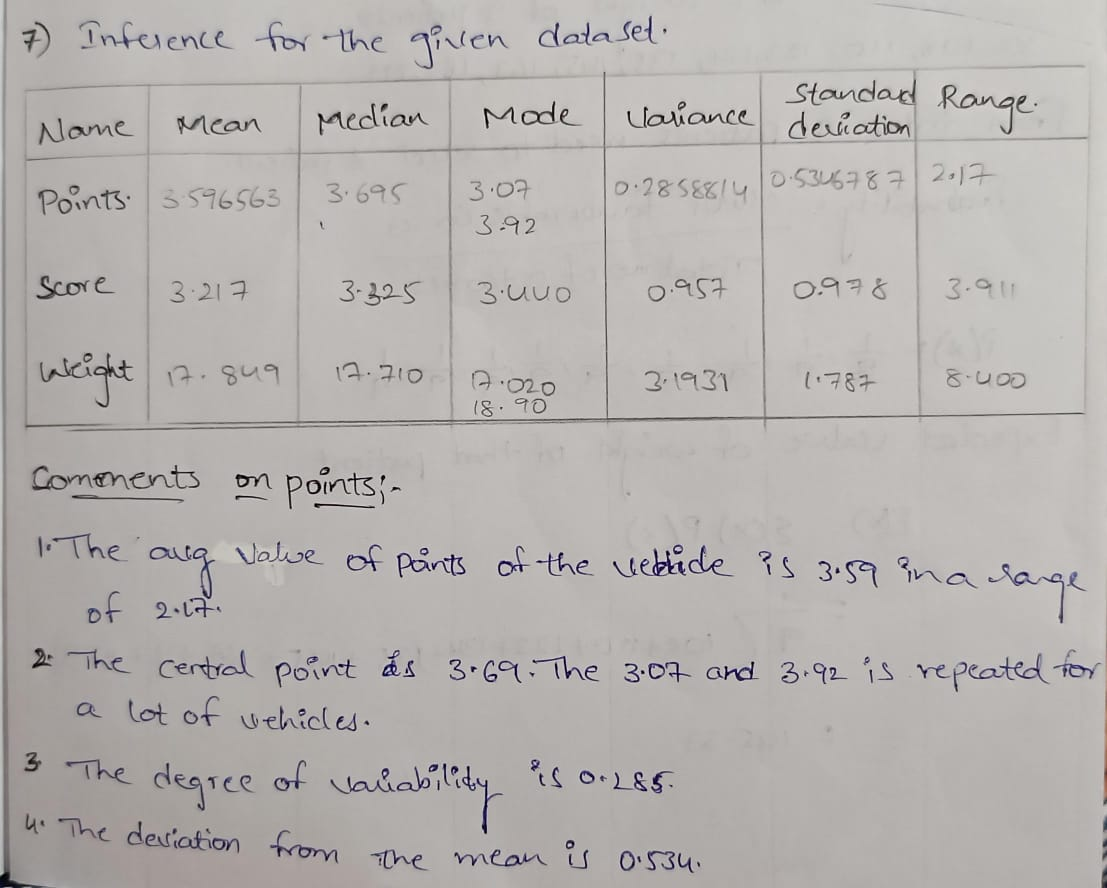 7) Inference for the given dataset.
Name Mean Median Mode Variance Standard deviation Range.
Points. 3.596563 3.695 3.07 0.2858814 0.5346787 2.17
3.92
Score 3.217 3.325 3.440 0.957 0.978 3.911
Weight 17.849 17.710 17.020 3.1931 1.787 8.400
18.90
Comments on points:-
1. The avg value of points of the vehicle is 3.59 in a range
of 2.17.
2. The central point is 3.69. The 3.07 and 3.92 is repeated for
a lot of vehicles.
3 The degree of variability is 0.285.
4. The deviation from the mean is 0.534.